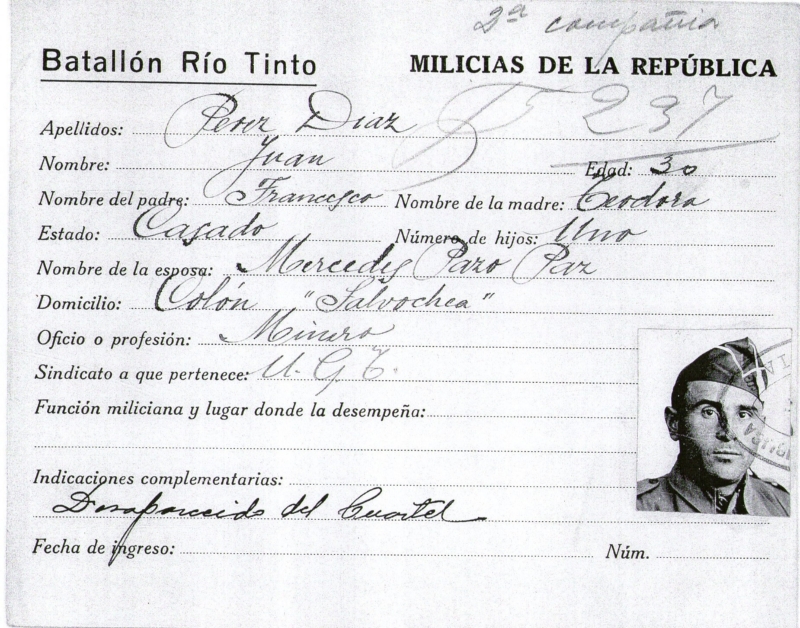 2ª compañia
Batallón Río Tinto MILICIAS DE LA REPÚBLICA
237
Apellidos: Perez Diaz
Nombre: Juan Edad: 30
Nombre del padre: Francisco Nombre de la madre: Teodora
Estado: Casado Número de hijos: Uno
Nombre de la esposa: Mercedes Pazo Paz
Domicilio: Colón "Salvochea"
Oficio o profesión: Minero
Sindicato a que pertenece: U. G. T.
Función miliciana y lugar donde la desempeña:
Indicaciones complementarias:
Desaparecido del Cuartel
Fecha de ingreso: Núm.